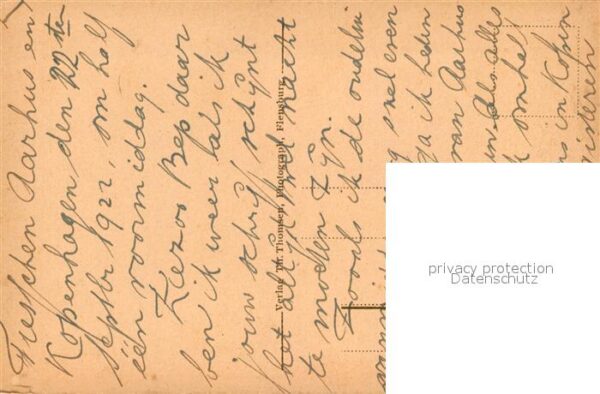 Tusschen Aarhus en
Kopenhagen, den 22ten
Septbr 1922, om half
één voormiddag.
Ziezoo Bep daar
ben ik weer. Als ik
jouw schrijf schijnt
het altijd nacht
te moeten zijn.
Zooals ik de
snel even
ja ik heden
van Aarhus
Als alles
omhel
in Kopen
Verlag Th. Thomsen, Photograph, Flensburg.
privacy protection
Datenschutz